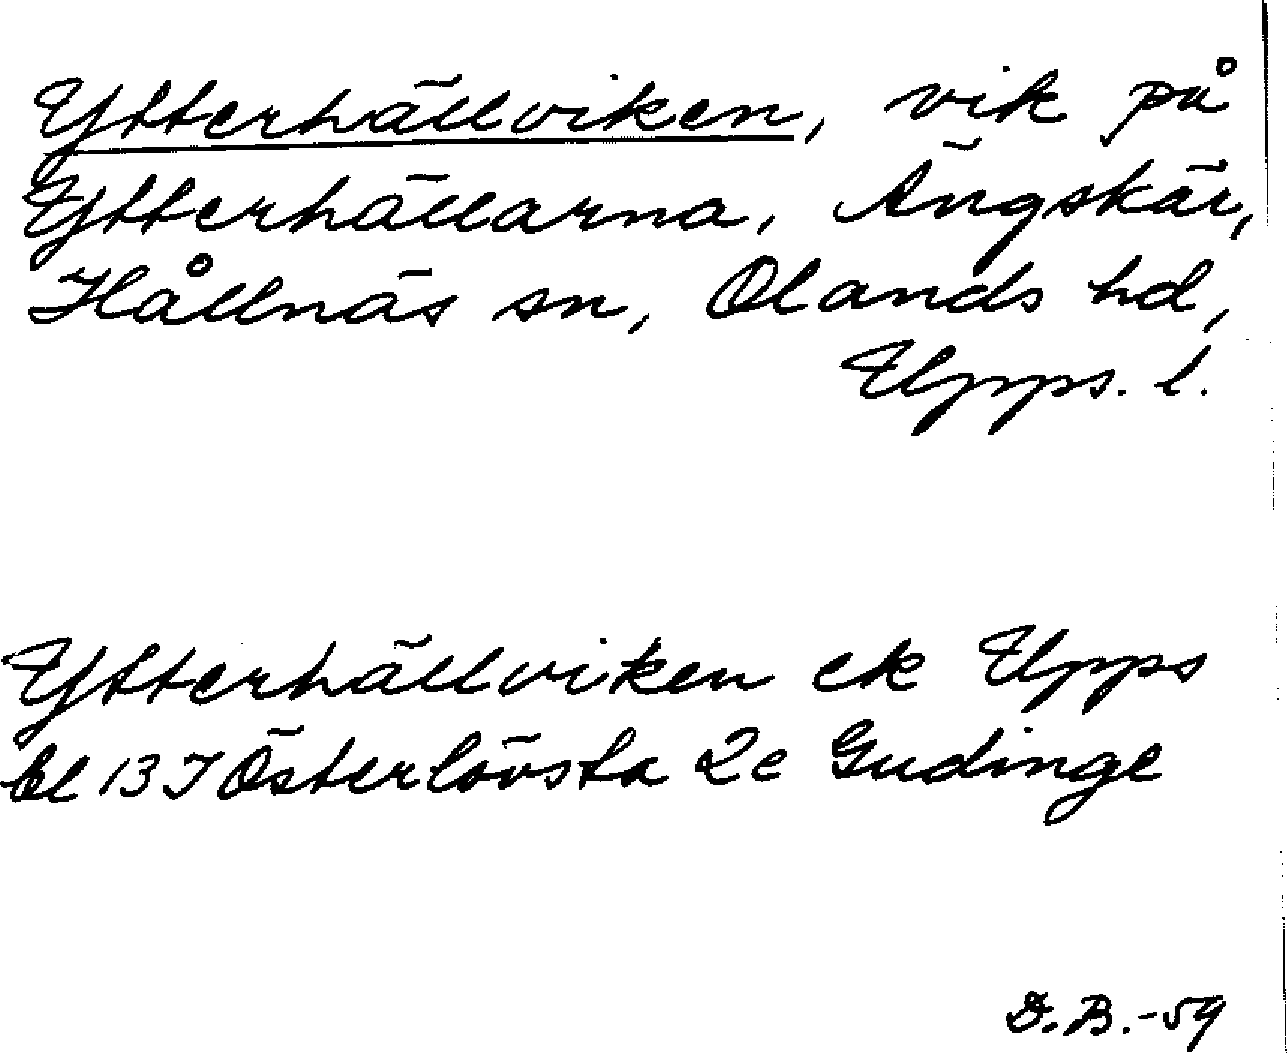 Ytterhällviken, vik på
Ytterhällarna, Ängskär,
Hållnäs sn, Olands hd,
Upps. l.
Ytterhällviken ek Upps
bl 13 I Österlövsta 2e Gudinge
D.B.-59